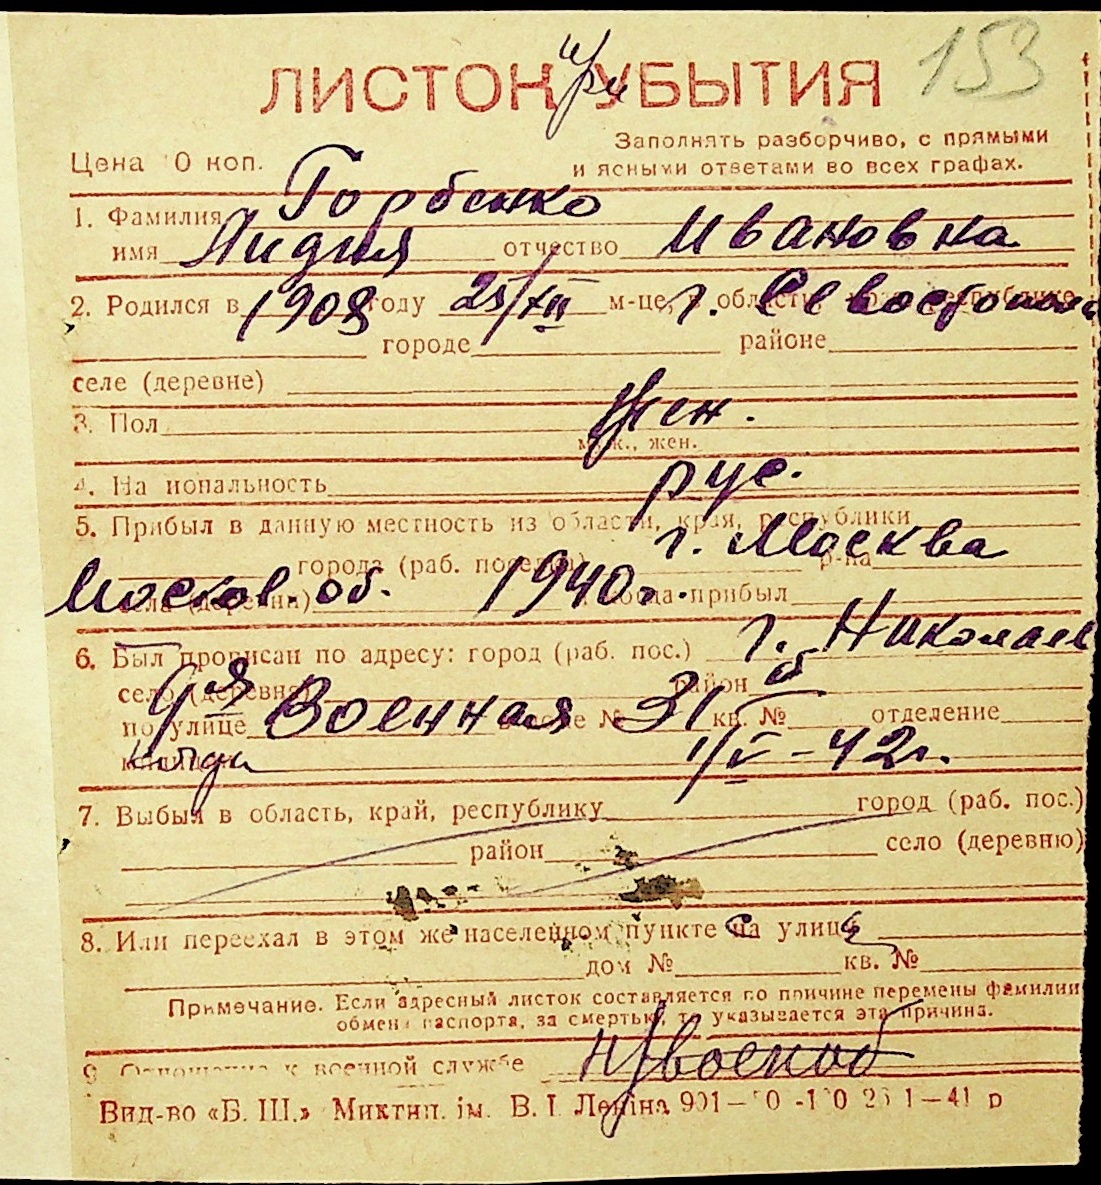 153
ЛИСТОК при УБЫТИЯ
Заполнять разборчиво, с прямыми
Цена 10 коп. и ясными ответами во всех графах.
1. Фамилия Горбенко
имя Лидия отчество Ивановна
2. Родился в 1908 году 25/XII м-це, в области г. Севостополь
городе районе
селе (деревне)
3. Пол жен.
муж., жен.
4. Национальность рус.
5. Прибыл в данную местность из области, края, республики
г. Москва
города (раб. поселка) р-на
Москов. об. 1940 г. когда прибыл
села (деревни)
6. Был прописан по адресу: город (раб. пос.) г. Николаев
село (деревня) район
по улице 9я Военная 31 кв. № отделение
1/V-42г.
7. Выбыл в область, край, республику город (раб. пос.)
район село (деревню)
8. Или переехал в этом же населенном пункте с на улицу
дом № кв. №
Примечание. Если адресный листок составляется по причине перемены фамилии
обмена паспорта, за смертью, то указывается эта причина.
9. Отношение к военной службе н/военоб
Вид-во «Б. Ш.» Миктип. ім. В. І. Леніна